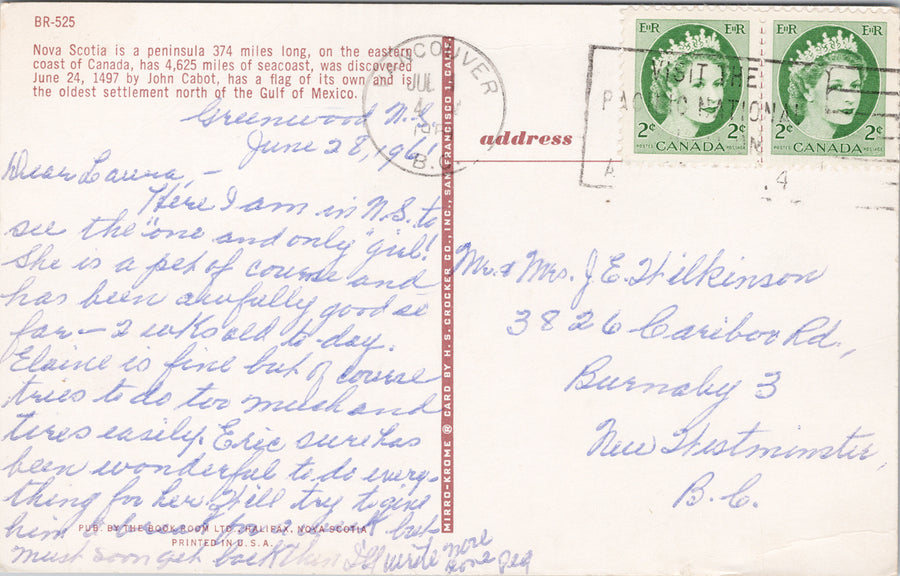 BR-525
Nova Scotia is a peninsula 374 miles long, on the eastern
coast of Canada, has 4,625 miles of seacoast, was discovered
June 24, 1497 by John Cabot, has a flag of its own and is
the oldest settlement north of the Gulf of Mexico.
Greenwood N.S.
June 28, 1961
Dear Laura, -
Here I am in N.S. to
see the "one and only" girl!
She is a pet of course and
has been awfully good so
far - 2 wks old to-day.
Elaine is fine but of course
tries to do too much and
tires easily. Eric sure has
been wonderful to do every-
thing for her. I'll try to give
him a break for a week but
must soon get back then I'll write more
PUB. BY THE BOOK ROOM LTD., HALIFAX, NOVA SCOTIA
PRINTED IN U.S.A.
MIRRO-KROME ® CARD BY H. S. CROCKER CO., INC., SAN FRANCISCO 1, CALIF.
address
VANCOUVER
JUL
4
B.C.
VISIT THE
PACIFIC NATIONAL
EIIR EIIR
2¢ 2¢
POSTES CANADA POSTAGE
EIIR EIIR
2¢ 2¢
POSTES CANADA POSTAGE
Mr. & Mrs. J. E. Wilkinson
3826 Cariboo Rd.,
Burnaby 3
New Westminster,
B.C.